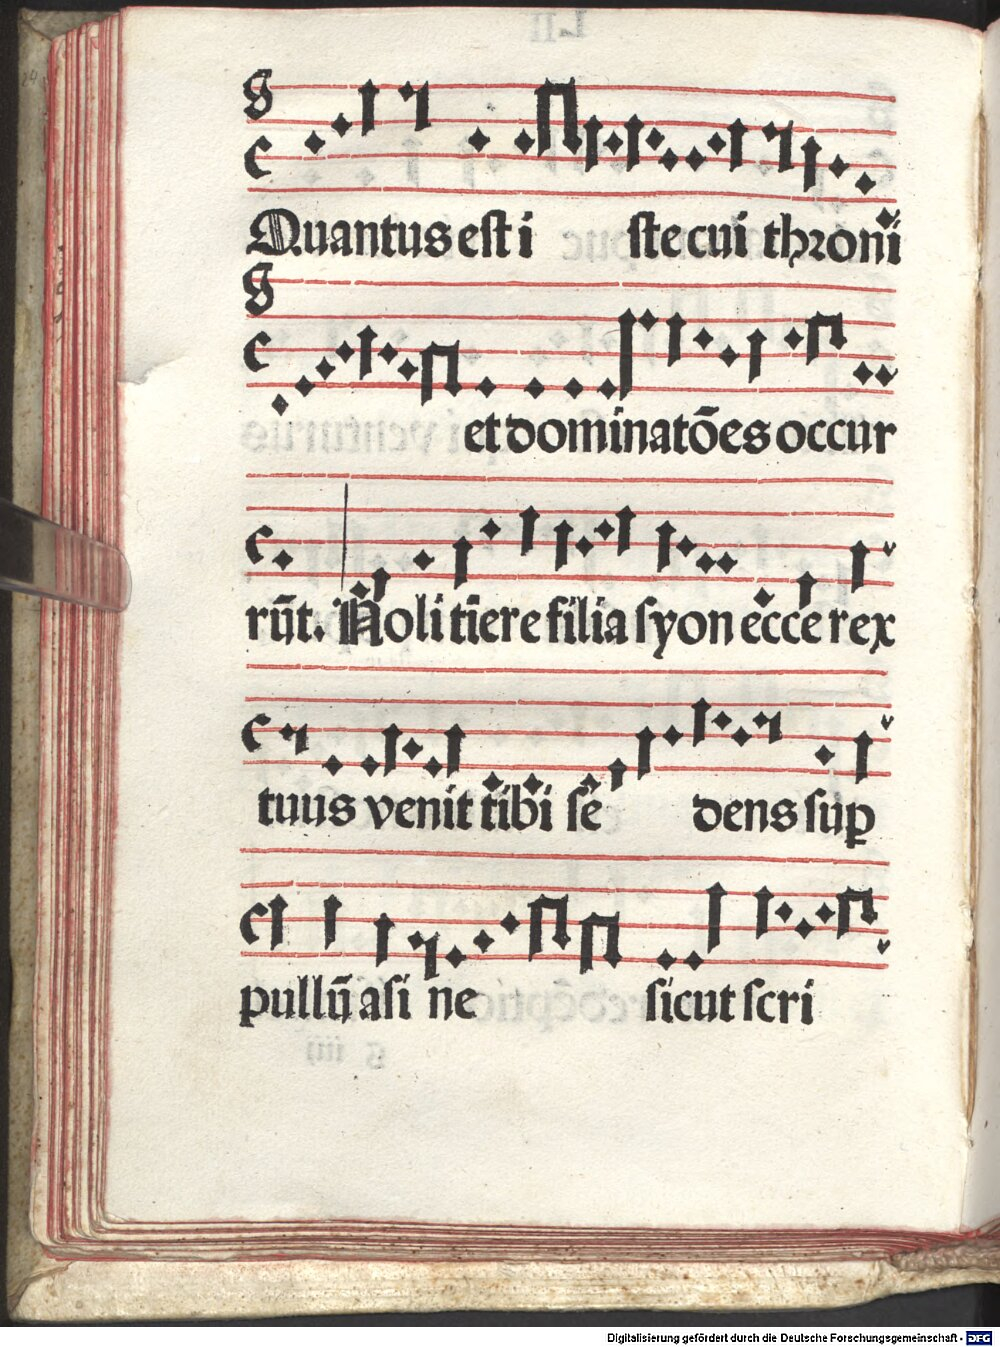 Quantus est i ste cui throni
et dominatōes occur
rūt. Noli tīere filia syon ecce rex
tuus venit tibi sē dens sup
pullū asi ne sicut scri
Digitalisierung gefördert durch die Deutsche Forschungsgemeinschaft - DFG